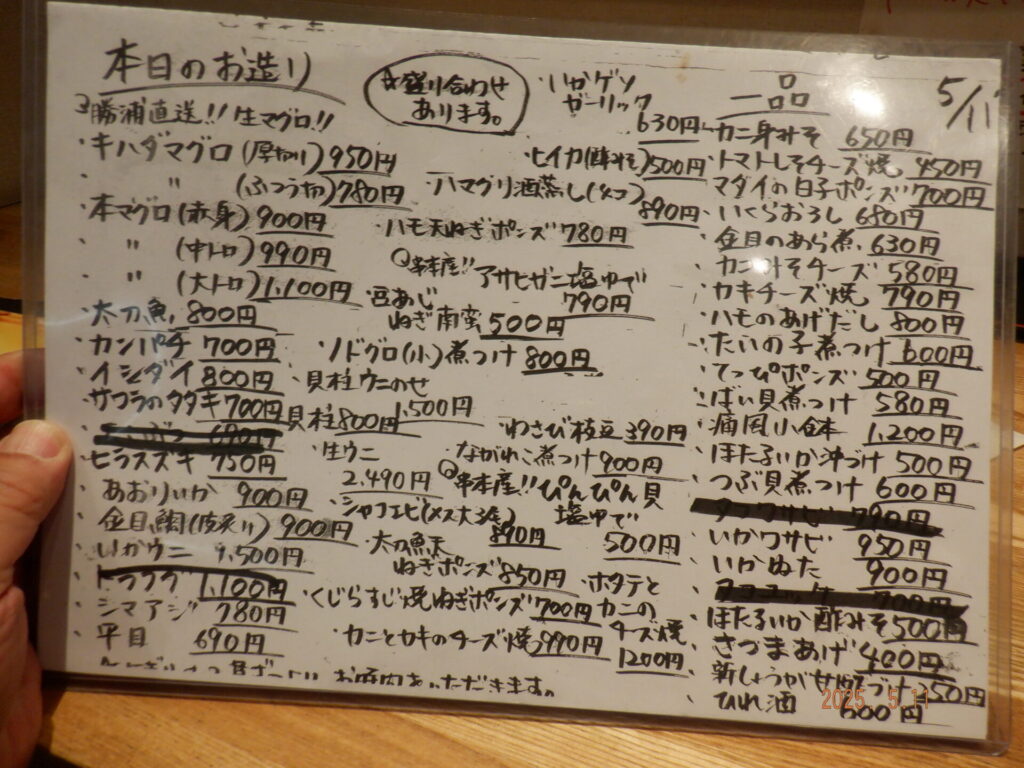 本日のお造り
☆盛り合わせ
あります。
勝浦直送!! 生マグロ!!
・キハダマグロ(厚切り) 950円
・ 〃 (ふつう切) 780円
・本マグロ(赤身) 900円
・ 〃 (中トロ) 990円
・ 〃 (大トロ) 1,100円
・太刀魚 800円
・カンパチ 700円
・イシダイ 800円
・サワラのタタキ 700円
・ヒラスズキ 750円
・あおりいか 900円
・金目鯛(皮炙り) 900円
・いかウニ 1,500円
・トラフグ 1,100円
・シマアジ 780円
・平目 690円
・いかゲソ
ガーリック
630円
・ヒイカ(酢みそ) 500円
・ハマグリ酒蒸し(4コ)
890円
・ハモ天ねぎポンズ 780円
串本産!! アサヒガニ塩ゆで
790円
・豆あじ
ねぎ南蛮 500円
・ノドグロ(小)煮つけ 800円
・貝柱ウニのせ
1,500円
貝柱 800円
・わさび枝豆 390円
・生ウニ
2,490円
・ながれこ煮つけ 900円
串本産!! ぴんぴん貝
塩ゆで
500円
・シャコエビ(メス大3尾)
890円
・太刀魚天
ねぎポンズ 850円
・ホタテと
カニの
チーズ焼
1200円
・くじらすじ焼ねぎポンズ 700円
・カニとカキのチーズ焼 990円
お時間をいただきます。
一品
5/11
・カニ身みそ 650円
・トマトしそチーズ焼 450円
・マダイの白子ポンズ 700円
・いくらおろし 680円
・金目のあら煮 630円
・カニみそチーズ 580円
・カキチーズ焼 790円
・ハモのあげだし 800円
・たいの子煮つけ 600円
・てっぴポンズ 500円
・ばい貝煮つけ 580円
・痛風小鉢 1,200円
・ほたるいか沖づけ 500円
・つぶ貝煮つけ 600円
・いかワサビ 950円
・いかぬた 900円
・ほたるいか酢みそ 500円
・さつまあげ 400円
・新しょうが甘酢づけ
・ひれ酒 600円
2025. 5.11